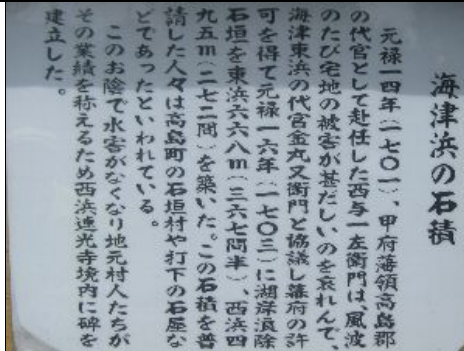 海津浜の石積
元禄一四年(一七〇一)、甲府藩領高島郡
の代官として赴任した西与一左衛門は、風波
のたび宅地の被害が甚だしいのを哀れんで、
海津東浜の代官金丸又衛門と協議し幕府の許
可を得て元禄一六年(一七〇三)に湖岸浪除
石垣を東浜六六八m(三六七間半)、西浜四
九五m(二七二間)を築いた。この石積を普
請した人々は高島町の石垣村や打下の石屋な
どであったといわれている。
このお陰で水害がなくなり地元村人たちが
その業績を称えるため西浜蓮光寺境内に碑を
建立した。